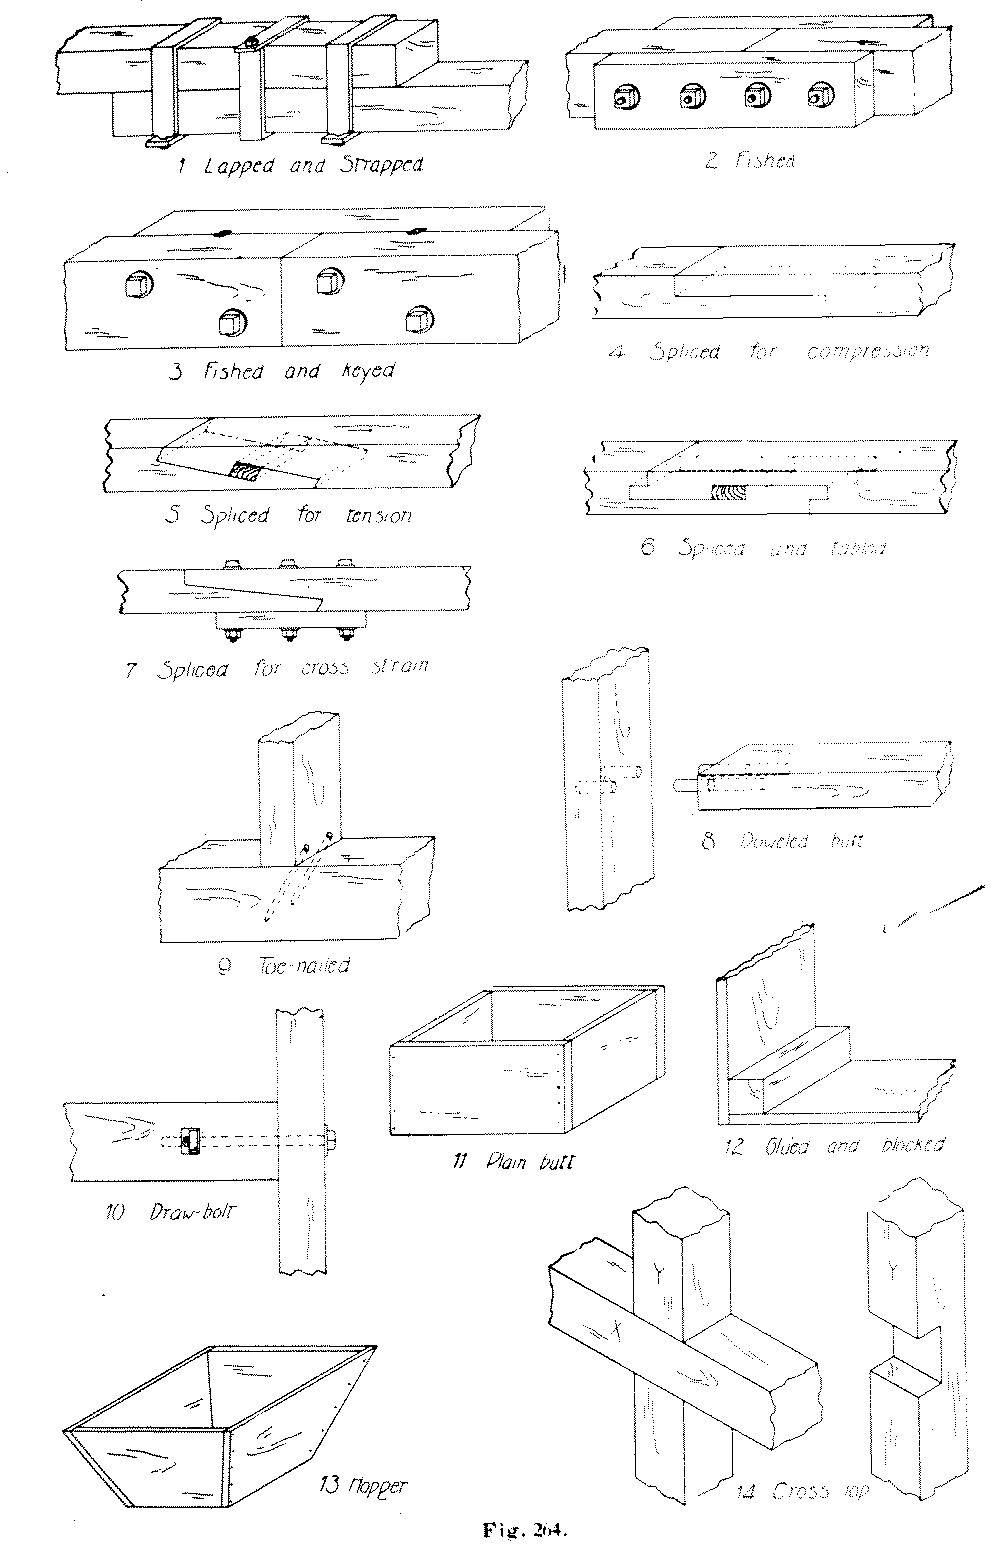 1 Lapped and Strapped
2 Fished
3 Fished and keyed
4 Spliced for compression
5 Spliced for tension
6 Spliced and tabled
7 Spliced for cross strain
8 Doweled butt
9 Toe-nailed
10 Draw-bolt
11 Plain butt
12 Glued and blocked
13 Hopper
14 Cross lap
X
Y
Y
Fig. 264.